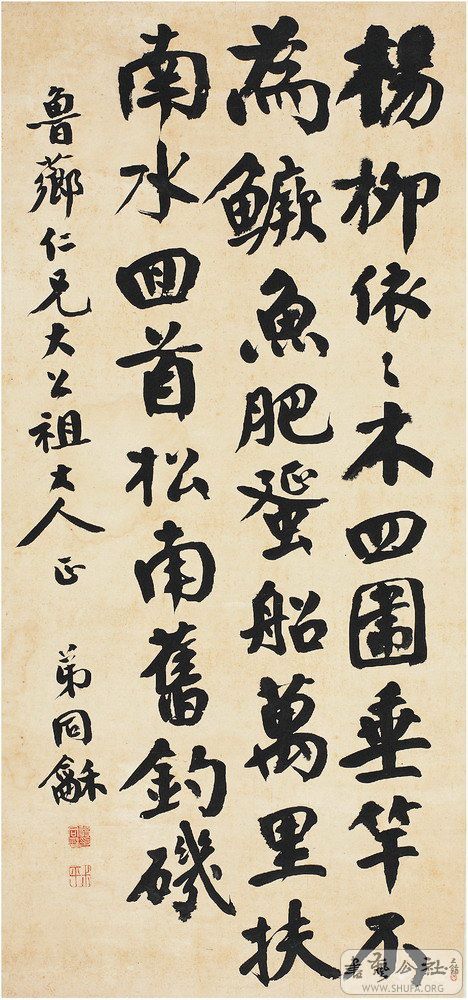 楊柳依〻木四圍垂竿不
為鱖魚肥蜑船萬里扶
南水回首松南舊釣磯
魯薌仁兄大公祖大人正 弟同龢
書藝公社
WWW.SHUFA.ORG